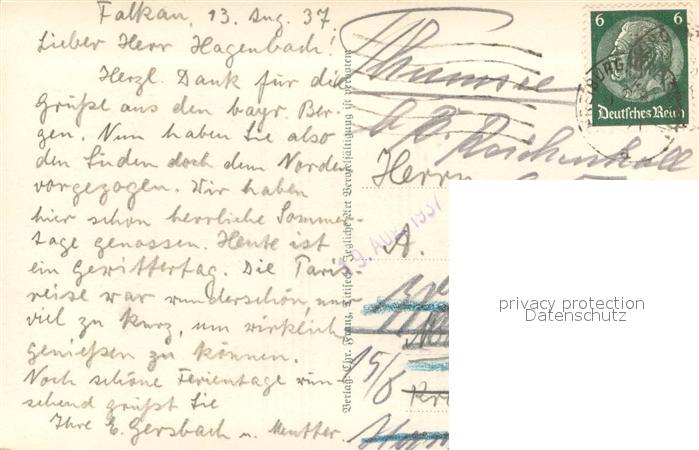 Falkau, 13. Aug. 37.
Lieber Herr Hagenbach!
Herzl. Dank für die
Grüße aus den bayr. Ber-
gen. Nun haben Sie also
den Süden doch dem Norden
vorgezogen. Wir haben
hier schon herrliche Sommer-
tage genossen. Heute ist
ein Gewittertag. Die Paris-
reise war wunderschön, nur
viel zu kurz, um wirklich
genießen zu können.
Noch schöne Ferientage wün-
schend grüßt Sie
Ihre E. Gersbach u. Mutter.
Verlag: Chr. Franz, Titisee. Jegliche Art Vervielfältigung ist verboten
6 6
Deutsches Reich
Reichenhall
Herrn
A.
19. Aug. 1937
15/8
privacy protection
Datenschutz